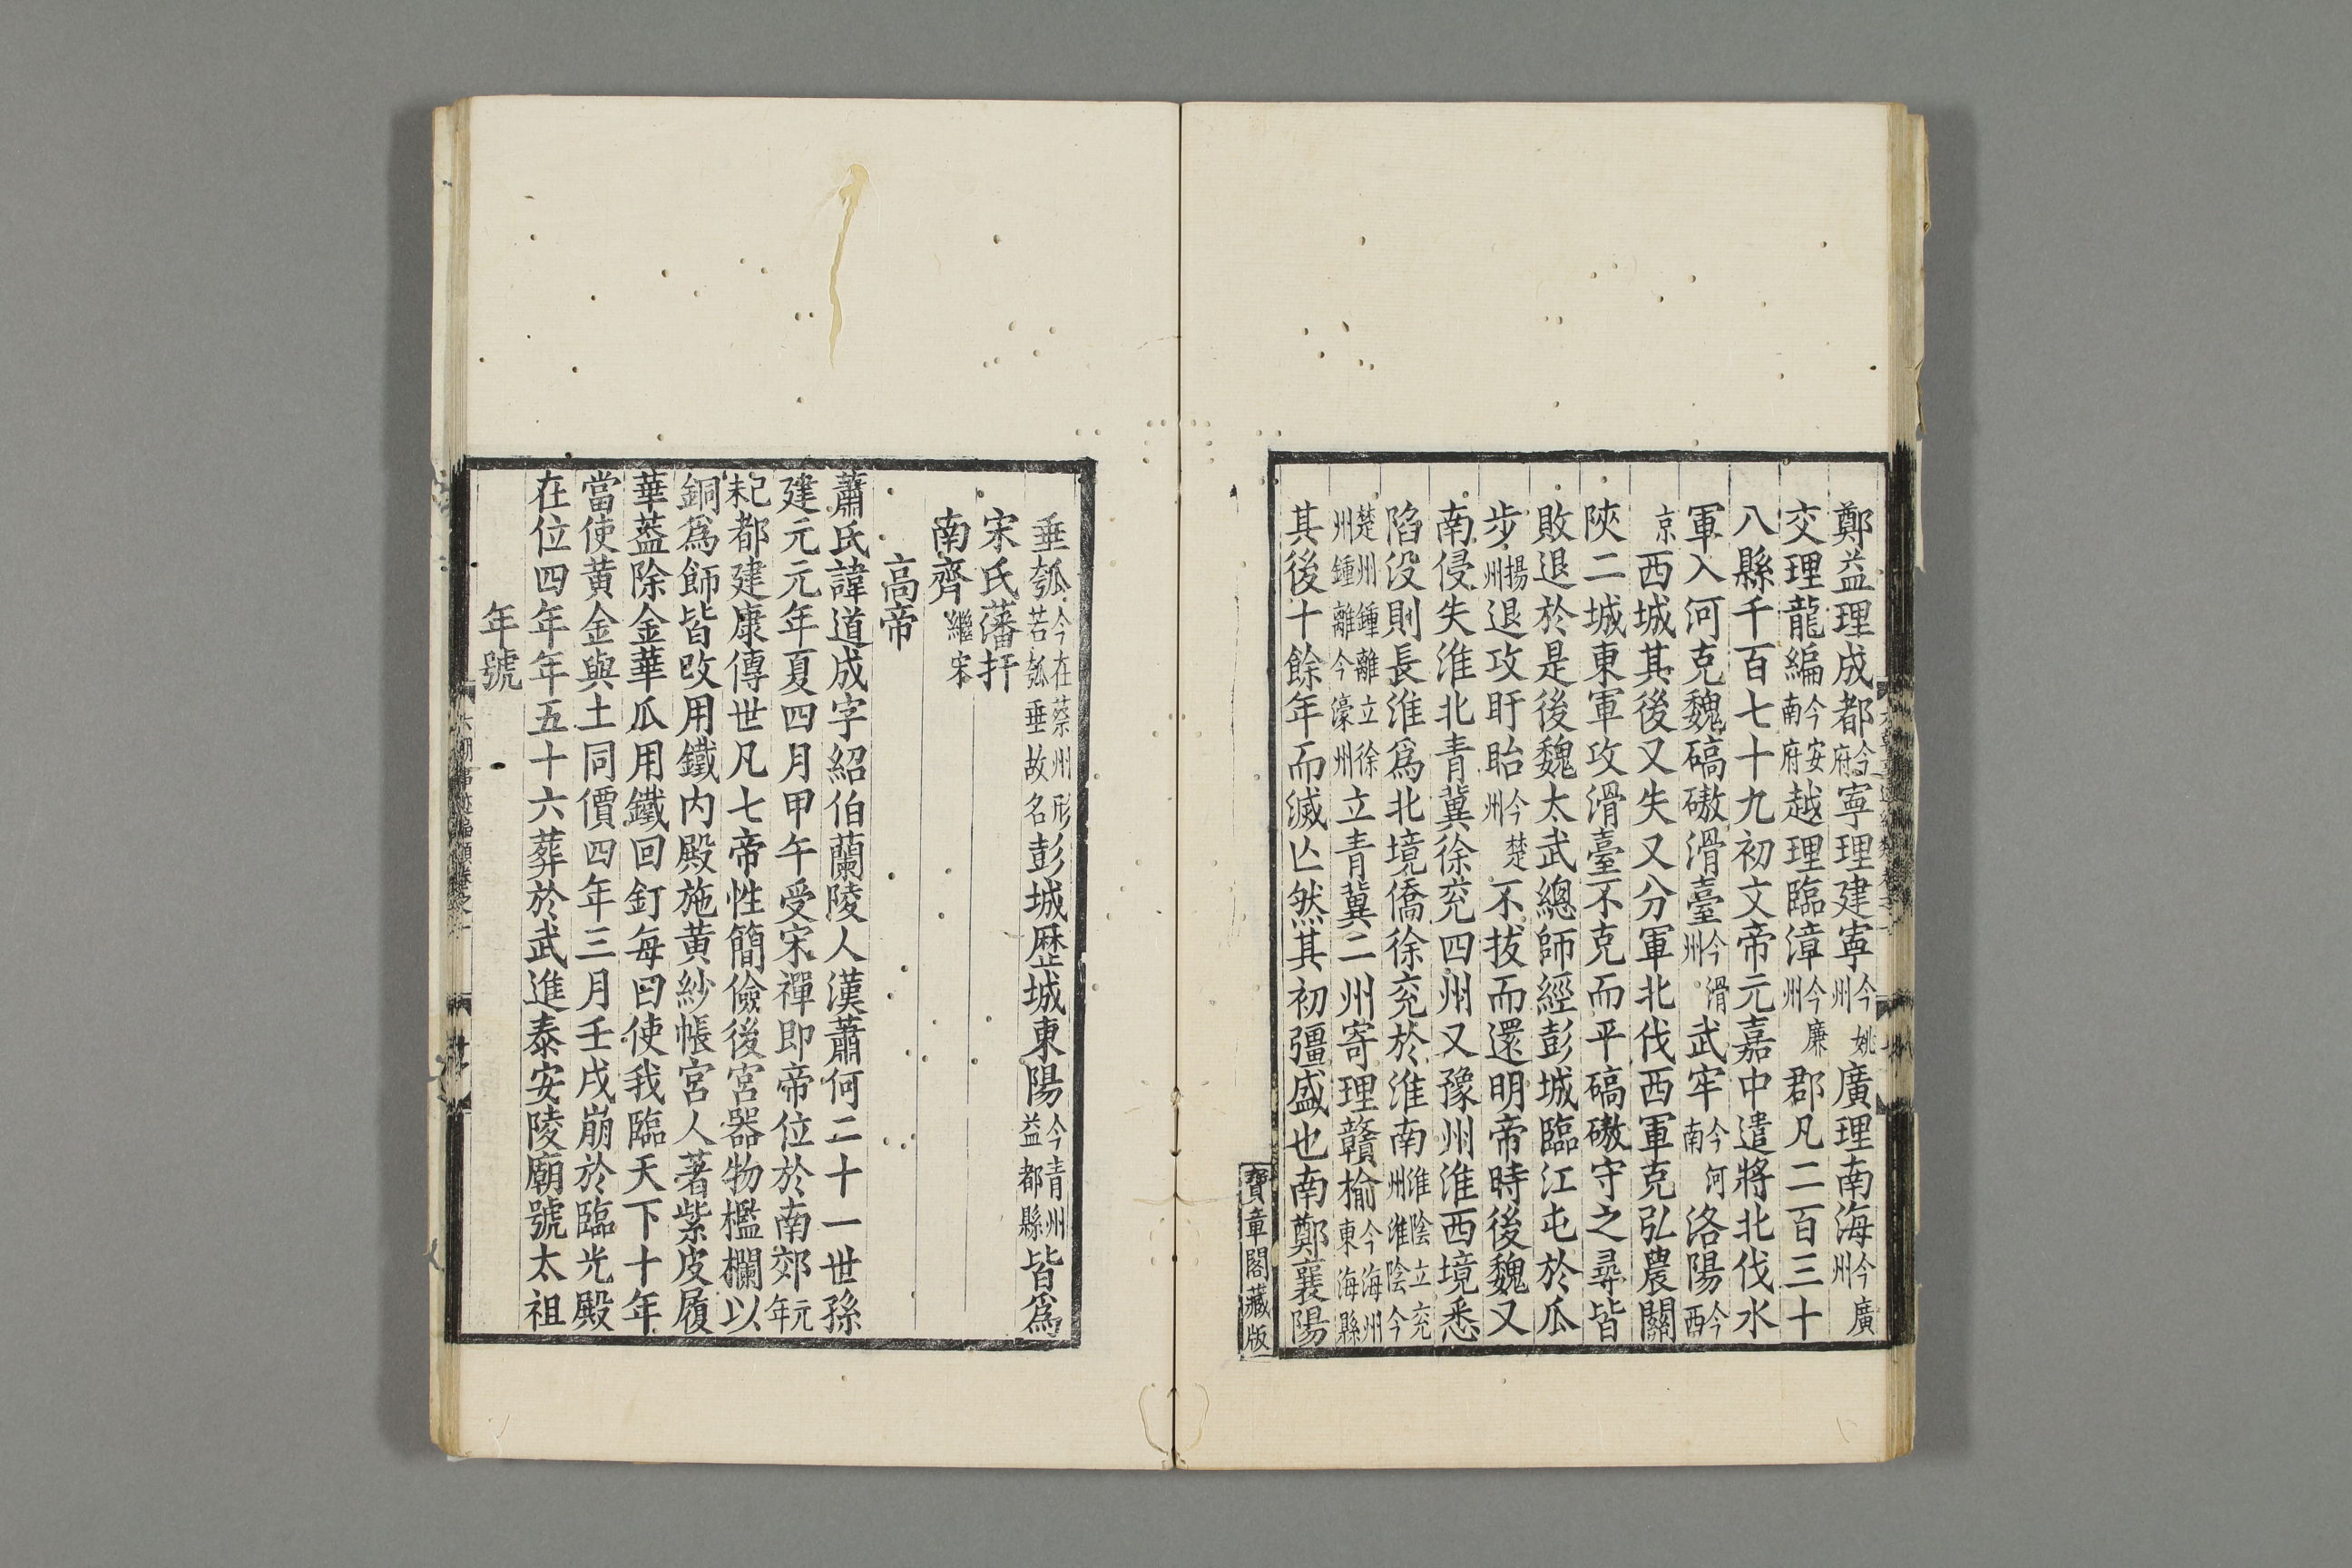 鄭益理成都今府寧理建寧今姚州廣理南海今廣州
交理龍編今安南府越理臨漳今廉州郡凡二百三十
八縣千百七十九初文帝元嘉中遣將北伐水
軍入河克魏碻磝滑臺今滑州武牢今河南洛陽今西
京西城其後又失又分軍北伐西軍克弘農關
陝二城東軍攻滑臺不克而平碻磝守之尋皆
敗退於是後魏太武總師經彭城臨江屯於瓜
步揚州退攻盱眙今楚州不拔而還明帝時後魏又
南侵失淮北青冀徐兖四州又豫州淮西境悉
陷没則長淮爲北境僑徐兖於淮南淮陰立兖州淮陰今
楚州鍾離立徐州鍾離今濠州立青冀二州寄理贛榆今海州東海縣
其後十餘年而滅亾然其初彊盛也南鄭襄陽
寶章閣藏版
垂瓠今在蔡州形若瓠垂故名彭城歷城東陽今青州益都縣皆爲
宋氏藩扞
南齊繼宋
高帝
蕭氏諱道成字紹伯蘭陵人漢蕭何二十一世孫
建元元年夏四月甲午受宋禪即帝位於南郊元年
耜都建康傳世凡七帝性簡儉後宮器物檻欄以
銅爲飾皆改用鐵内殿施黄紗帳宮人著紫皮履
華葢除金華瓜用鐵回釘每曰使我臨天下十年
當使黄金與土同價四年三月壬戌崩於臨光殿
在位四年年五十六葬於武進泰安陵廟號太祖
年號
六朝事迹編類卷之一